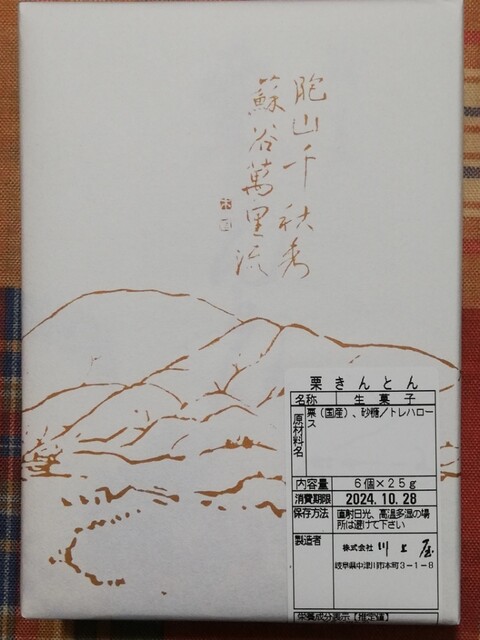 胞山千秋秀
蘇谷萬里流
栗きんとん
名称 生菓子
原材料名 栗(国産)、砂糖/トレハロー
ス
内容量 6個×25g
消費期限 2024.10.28
保存方法 直射日光、高温多湿の場
所は避けて下さい
製造者 株式会社 川上屋
岐阜県中津川市本町3-1-8
栄養成分表示【推定値】